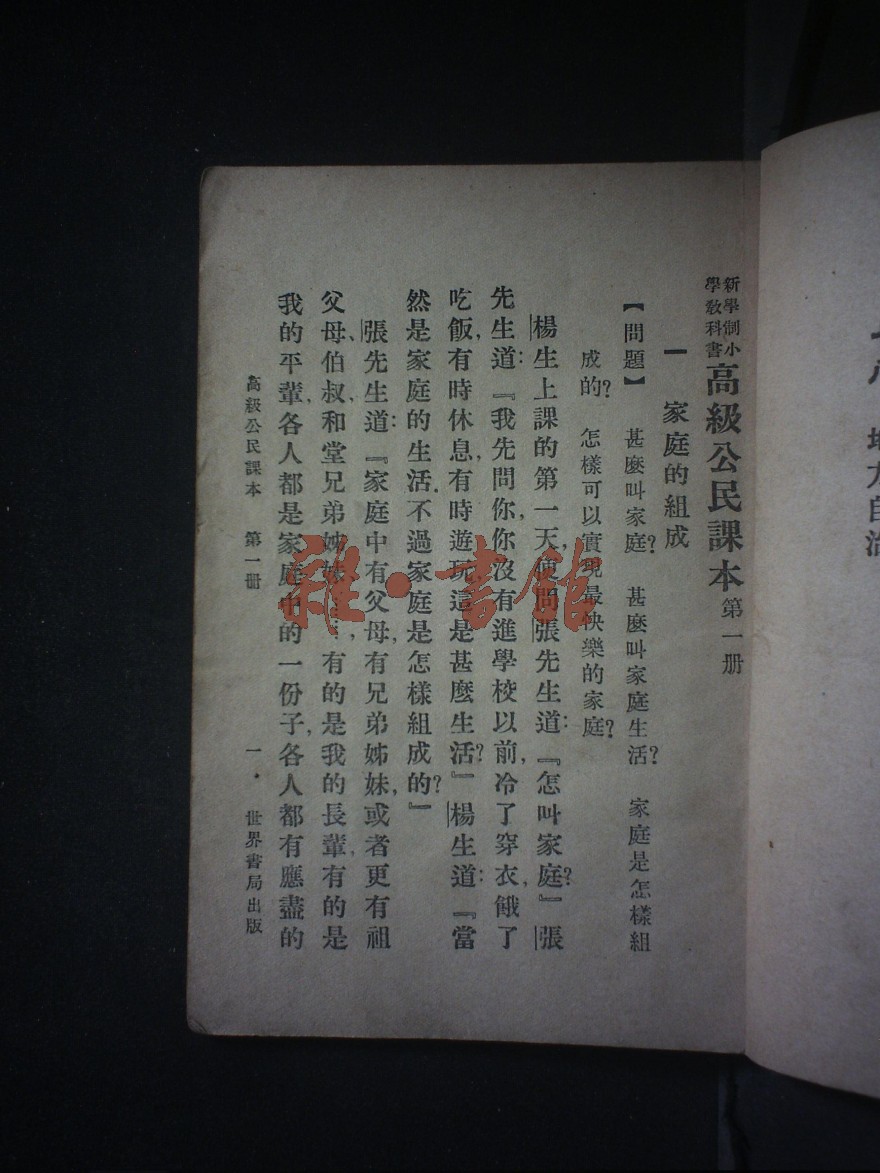 新學制小
學教科書
高級公民課本第一册
一 家庭的組成
【問題】 甚麼叫家庭？ 甚麼叫家庭生活？ 家庭是怎樣組
成的？ 怎樣可以實現最快樂的家庭？
楊生上課的第一天，便問張先生道：『怎叫家庭？』張
先生道：『我先問你，你沒有進學校以前，冷了穿衣，餓了
吃飯，有時休息，有時遊玩，這是甚麼生活？』楊生道：『當
然是家庭的生活．不過家庭是怎樣組成的？』
張先生道：『家庭中有父母，有兄弟姊妹，或者更有祖
父母、伯叔和堂兄弟姊妹……，有的是我的長輩，有的是
我的平輩，各人都是家庭中的一份子，各人都有應盡的
高級公民課本 第一册 一．世界書局出版
地方自治
雜·書館